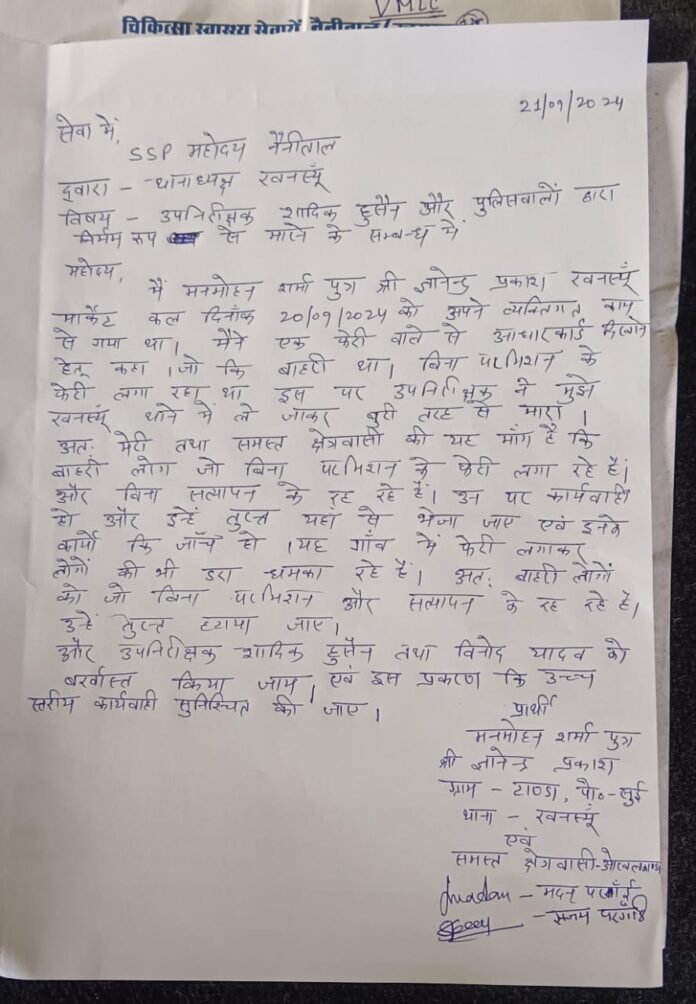 VMLC
चिकित्सा स्वास्थ्य सेवायें, नैनीताल
21/09/2024
सेवा में,
SSP महोदय नैनीताल
द्वारा - थानाध्यक्ष खनस्यूँ
विषय - उपनिरीक्षक शादिक हुसैन और पुलिसवालों द्वारा
निर्मम रूप से मारने के सम्बन्ध में
महोदय,
में मनमोहन शर्मा पुत्र श्री ज्ञानेन्द्र प्रकाश खनस्यूँ
मार्केट कल दिनाँक 20/09/2024 को अपने व्यक्तिगत काम
से गया था। मैने एक फेरी वाले से आधारकार्ड दिखाने
हेतू कहा। जो कि बाहरी था। बिना परमिशन के
फेरी लगा रहा था इस पर उपनिरीक्षक ने मुझे
खनस्यूँ थाने में ले जाकर बुरी तरह से मारा।
अतः मेरी तथा समस्त क्षेत्रवासी की यह माँग है कि
बाहरी लोग जो बिना परमिशन के फेरी लगा रहे हैं।
और बिना सत्यापन के रह रहे हैं। उन पर कार्यवाही
हो और इन्हें तुरन्त यहाँ से भेजा जाए एवं इनके
कार्यो कि जाँच हो। यह गाँव में फेरी लगाकर
लोगों को भी डरा धमका रहे हैं। अतः बाहरी लोगों
को जो बिना परमिशन और सत्यापन के रह रहे है।
उन्हें तुरन्त हटाया जाए।
और उपनिरीक्षक शादिक हुसैन तथा विनोद यादव को
बर्खास्त किया जाय। एवं इस प्रकरण कि उच्च
स्तरीय कार्यवाही सुनिस्चित की जाए।
प्रार्थी
मनमोहन शर्मा पुत्र
श्री ज्ञानेन्द्र प्रकाश
ग्राम - टाण्डा, पो०-सुई
थाना - खनस्यूँ
एवं
समस्त क्षेत्रवासी-ओखलकाण्डा
Madan - मदन परगाँई
- संजय परगाई